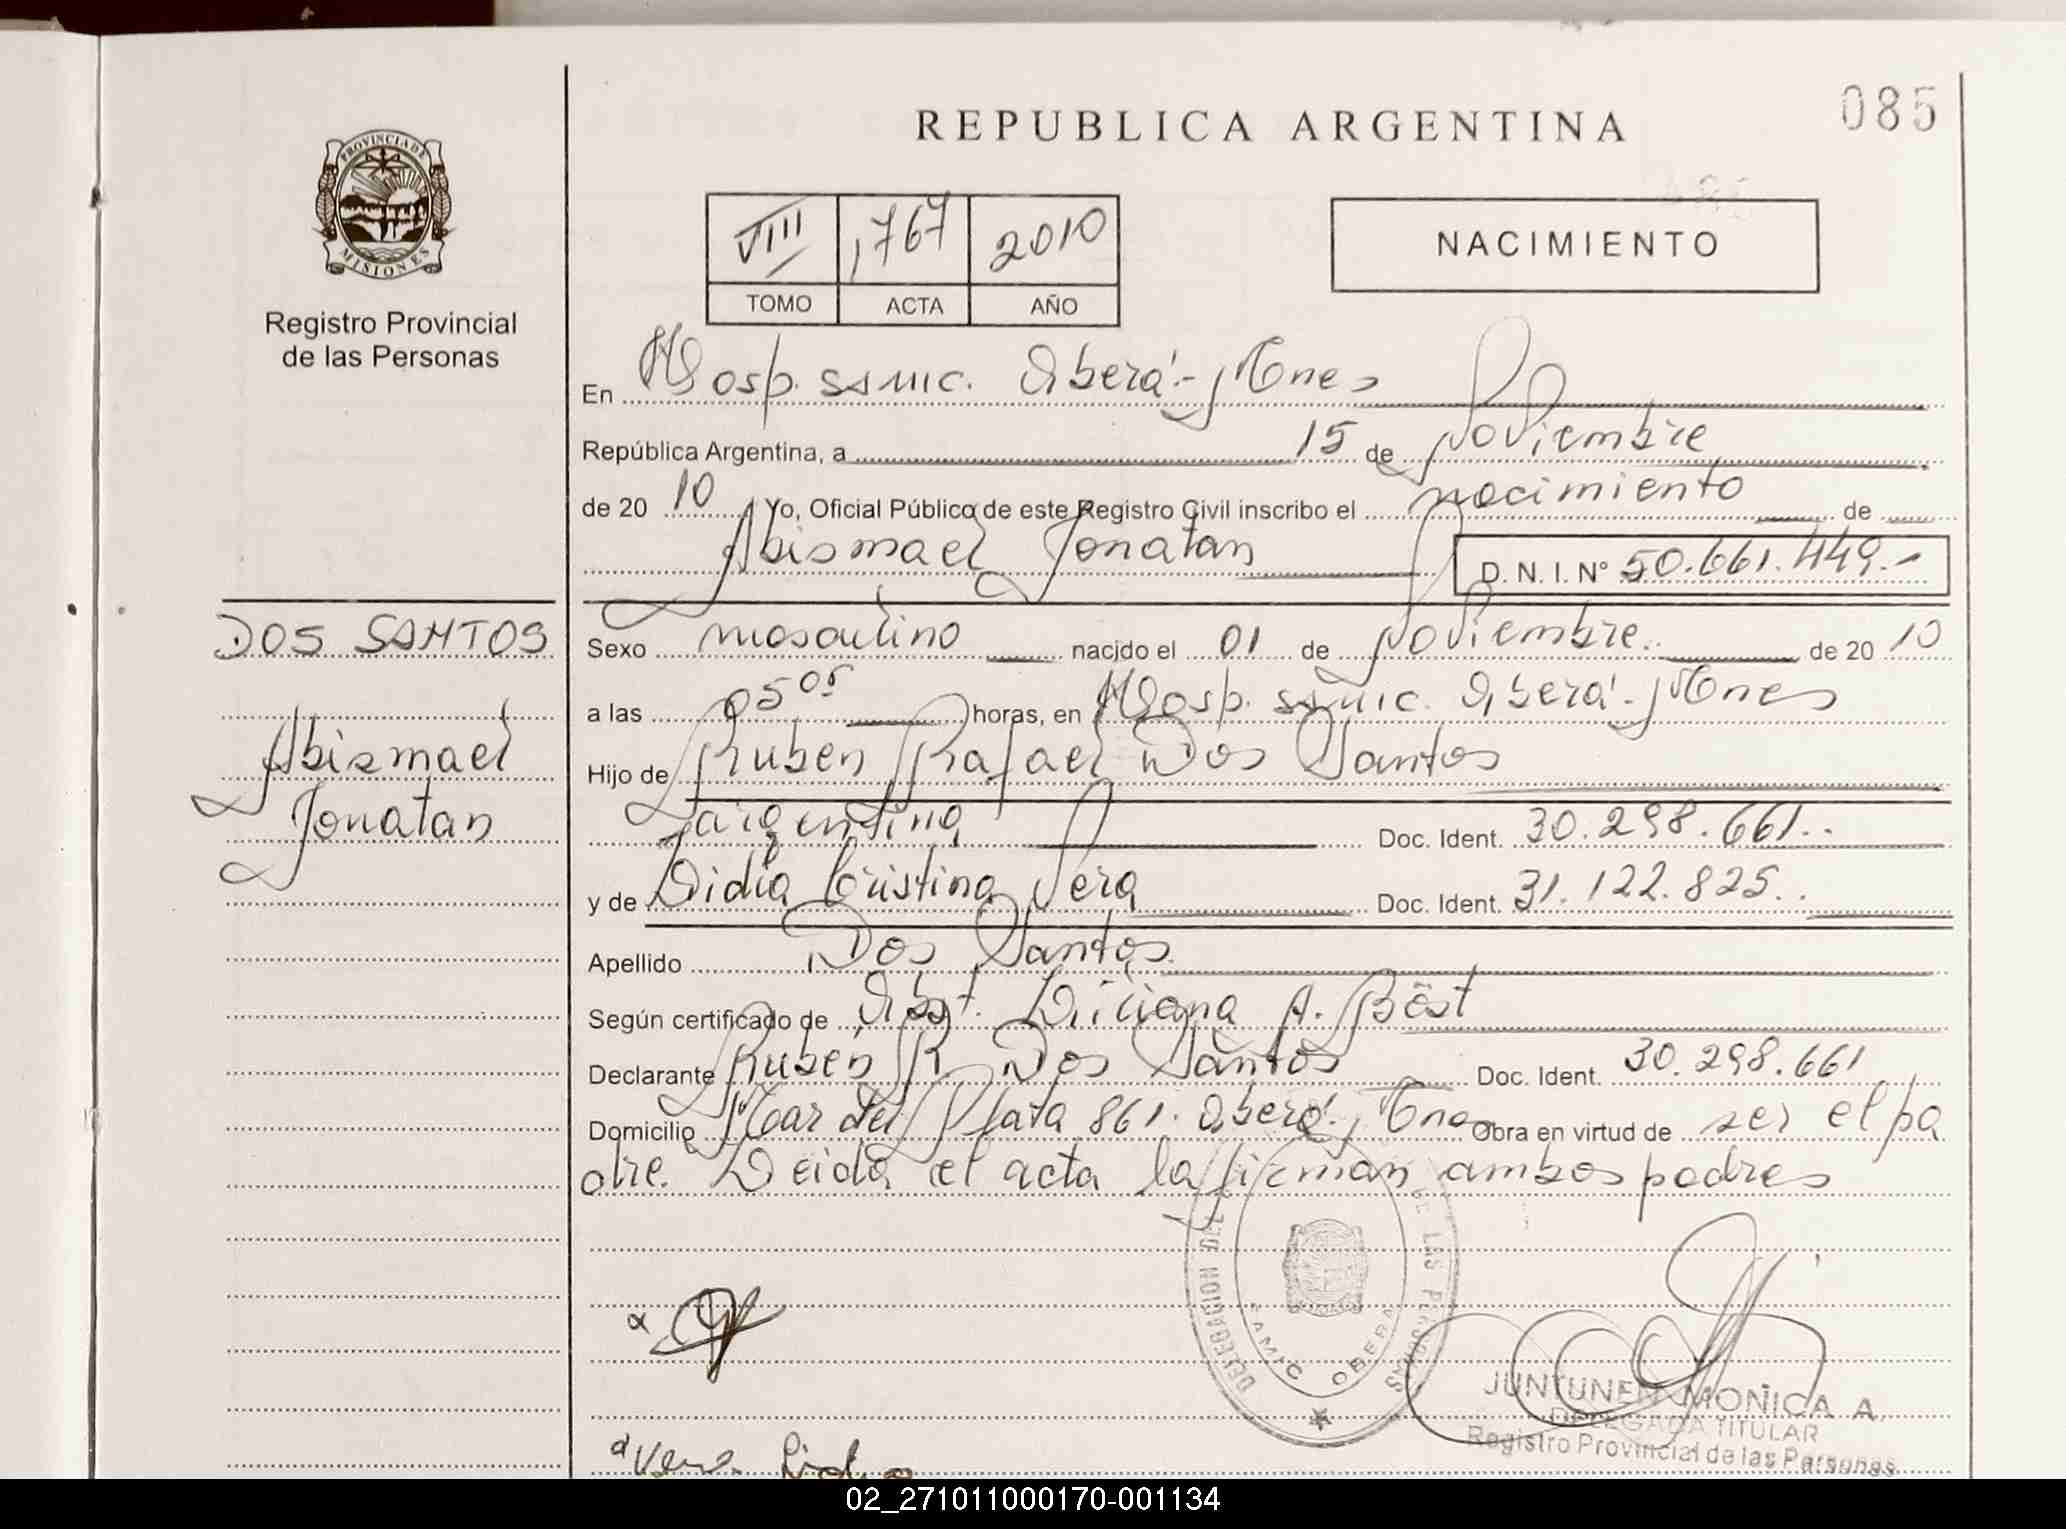 085
REPUBLICA ARGENTINA
PROVINCIA DE
MISIONES
Registro Provincial
de las Personas
VIII 1767 2010
TOMO ACTA AÑO
NACIMIENTO
En Hosp. samic. Oberá - Mnes
República Argentina, a 15 de Noviembre
de 20 10 Yo, Oficial Público de este Registro Civil inscribo el nacimiento de
Abismael Jonatan D. N. I. N° 50.661.449.-
DOS SANTOS
Abismael
Jonatan
Sexo masculino nacido el 01 de Noviembre. de 20 10
a las 05 05 horas, en Hosp. samic. Oberá - Mnes
Hijo de Ruben Rafael Dos Santos
argentina Doc. Ident. 30.298.661..
y de Lidia Cristina Vera Doc. Ident. 31.122.825..
Apellido Dos Santos.
Según certificado de Obst. Liliana A. Bëst
Declarante Ruben R. Dos Santos Doc. Ident. 30.298.661
Domicilio Mar del Plata 861. Oberá, Mnes Obra en virtud de ser el pa
dre. Leida el acta la firman ambos padres
DELEGACION DEL DE LAS PERSONAS
SAMIC OBERA
JUNTUNEN MONICA A.
DELEGADA TITULAR
Registro Provincial de las Personas
Vera Lidia
02_271011000170-001134